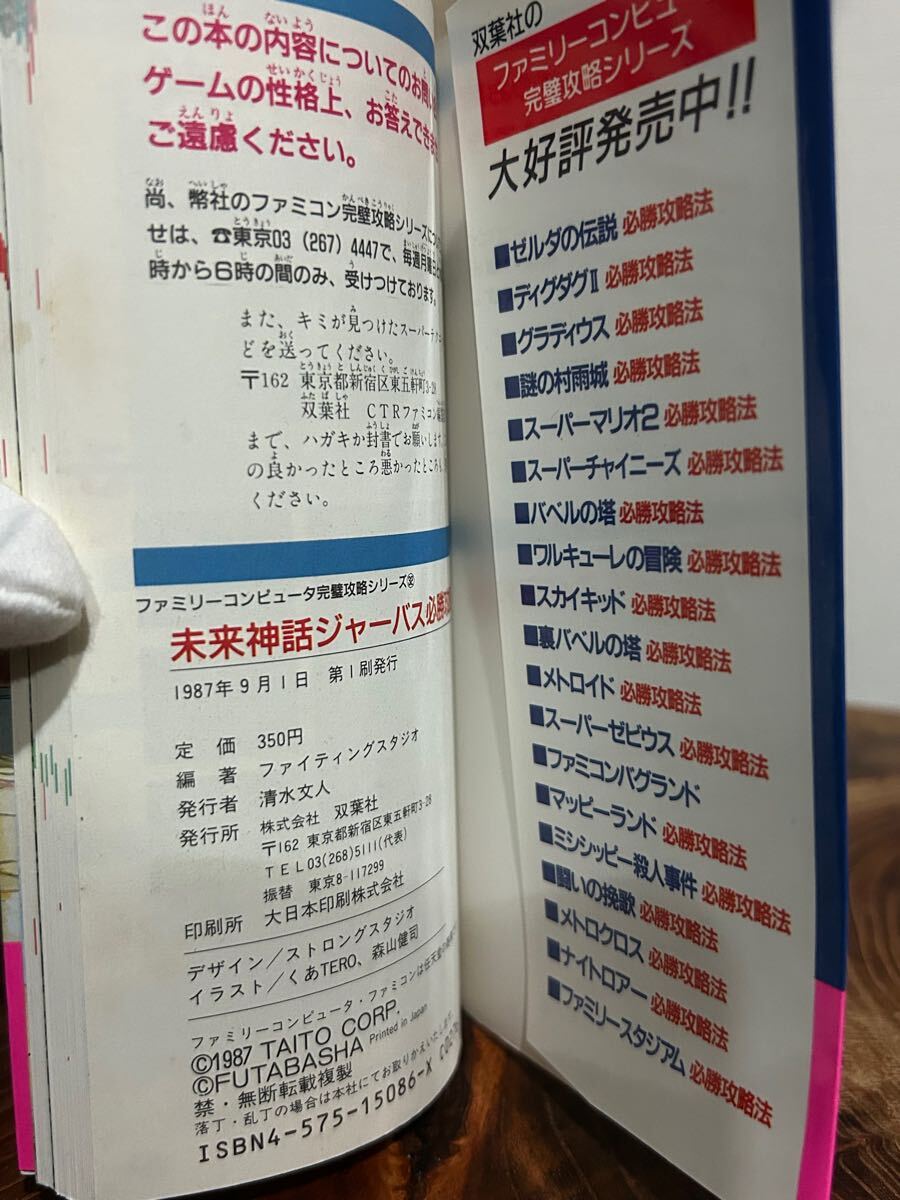 この本の内容についてのお問い
ゲームの性格上、お答えできま
ご遠慮ください。
尚、幣社のファミコン完璧攻略シリーズ
せは、☎東京03(267)4447で、毎週月曜
時から6時の間のみ、受けつけております。
また、キミが見つけたスーパーテク
どを送ってください。
〒162 東京都新宿区東五軒町3-28
双葉社 CTRファミコン
まで、ハガキか封書でお願いします。
の良かったところ悪かったところも
ください。
ファミリーコンピュータ完璧攻略シリーズ㉜
未来神話ジャーバス必勝
1987年9月1日 第1刷発行
定価 350円
編著 ファイティングスタジオ
発行者 清水文人
発行所 株式会社 双葉社
〒162 東京都新宿区東五軒町3-28
TEL03(268)5111(代表)
振替 東京8-117299
印刷所 大日本印刷株式会社
デザイン/ストロングスタジオ
イラスト/くあTERO、森山健司
ファミリーコンピュータ・ファミコンは任天堂の
©1987 TAITO CORP.
©FUTABASHA Printed in Japan
禁・無断転載複製
落丁・乱丁の場合は本社にてお取りかえいたします。
ISBN4-575-15086-X
双葉社の
ファミリーコンピュー
完璧攻略シリーズ
大好評発売中!!
■ゼルダの伝説 必勝攻略法
■ディグダグII 必勝攻略法
■グラディウス 必勝攻略法
■謎の村雨城 必勝攻略法
■スーパーマリオ2 必勝攻略法
■スーパーチャイニーズ 必勝攻略法
■バベルの塔 必勝攻略法
■ワルキューレの冒険 必勝攻略法
■スカイキッド 必勝攻略法
■裏バベルの塔 必勝攻略法
■メトロイド 必勝攻略法
■スーパーゼビウス 必勝攻略法
■ファミコンバグランド
■マッピーランド 必勝攻略法
■ミシシッピー殺人事件 必勝攻略法
■闘いの挽歌 必勝攻略法
■メトロクロス 必勝攻略法
■ナイトロアー 必勝攻略法
■ファミリースタジアム 必勝攻略法